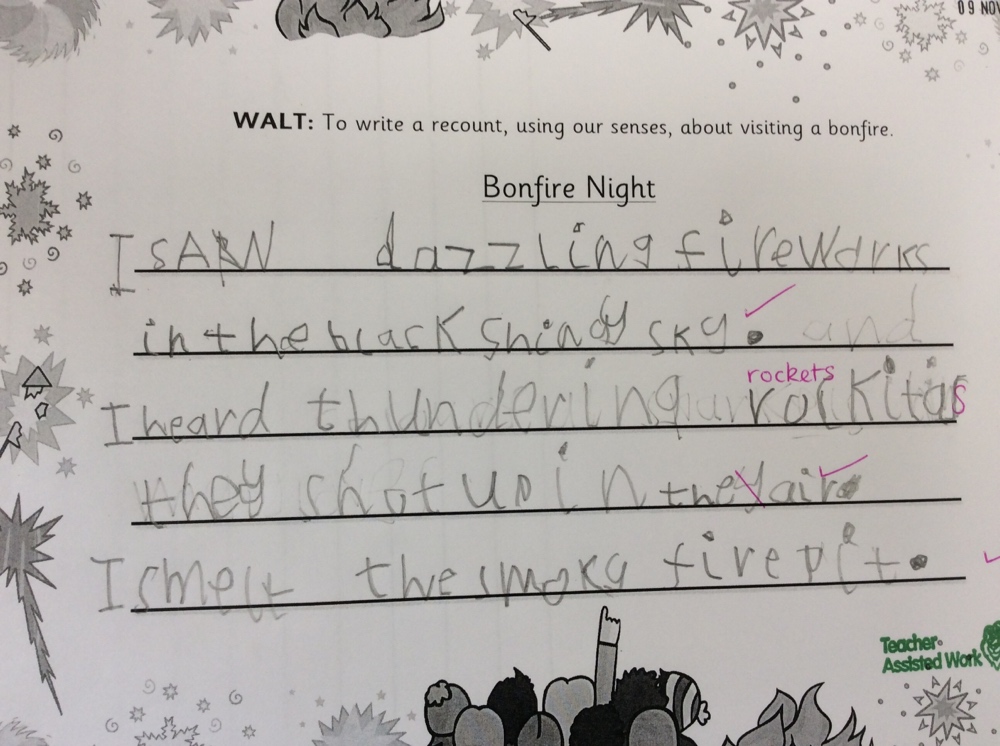 09 NOV
WALT: To write a recount, using our senses, about visiting a bonfire.
Bonfire Night
I sAW dazzling fireWorks
in the black Shindy sky. and
rockets
I heard thundering rockitas
they shot up in the air.
I smelt the smoky fire pit.
Teacher
Assisted Work